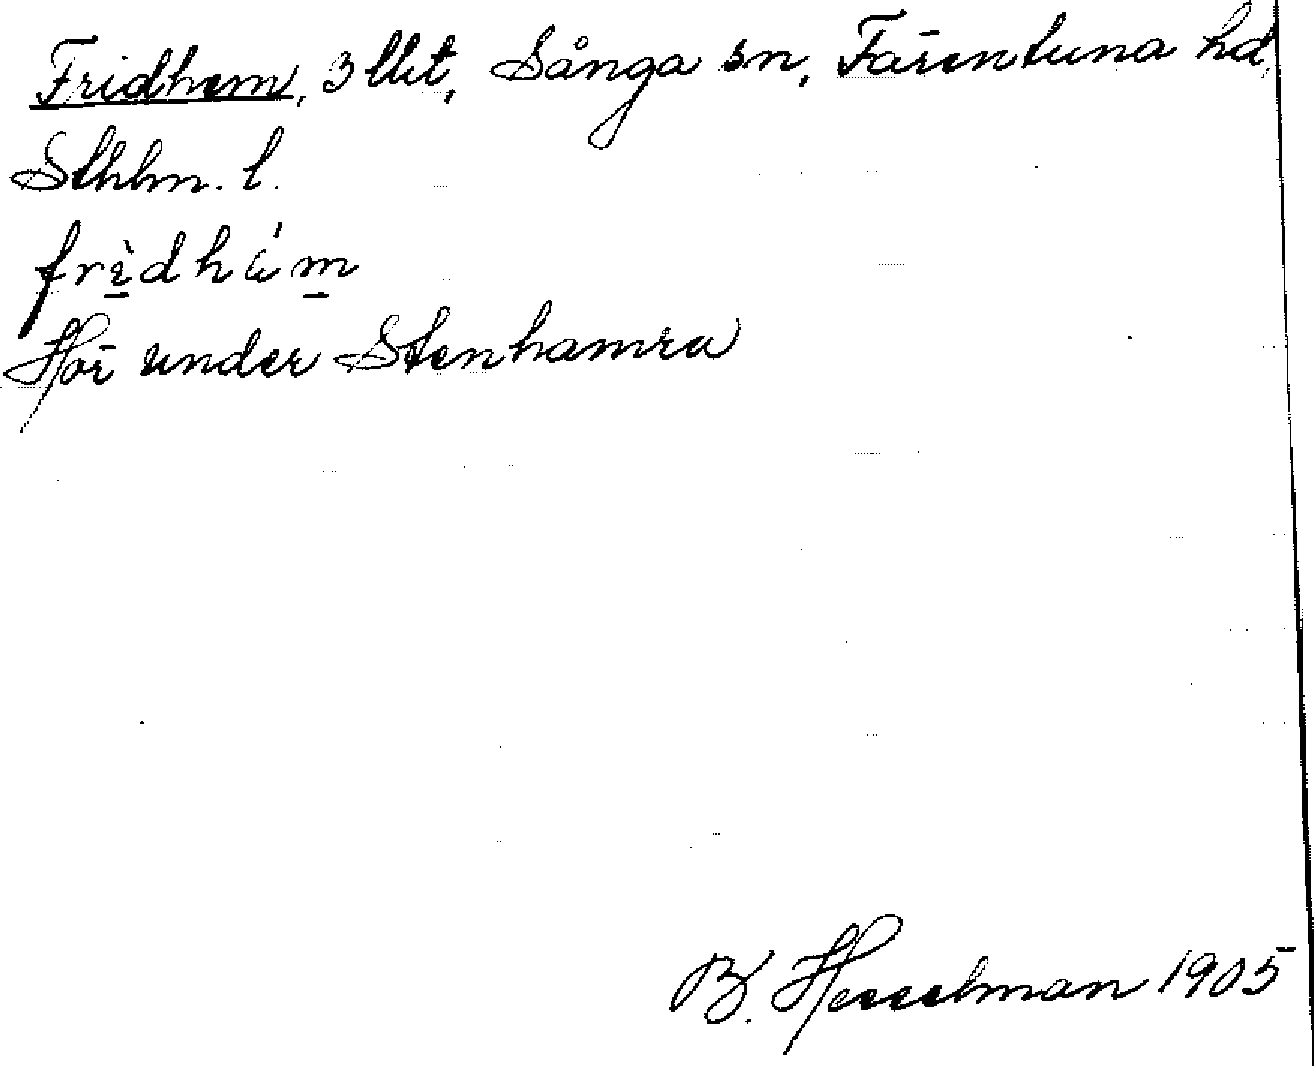 Fridhem, 3 lht, Sånga sn, Färentuna hd,
Sthlm. l.
frìdhém
Hör under Stenhamra
B. Hesselman 1905